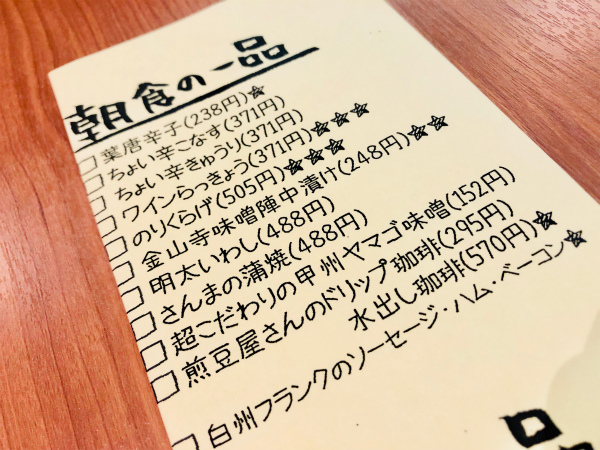 朝食の一品
□ 葉唐辛子(238円)☆
□ ちょい辛こなす(371円)
□ ちょい辛きゅうり(371円)
□ ワインらっきょう(371円)☆☆☆
□ のりくらげ(505円)☆☆☆
□ 金山寺味噌陣中漬け(248円)☆☆
□ 明太いわし(488円)
□ さんまの蒲焼(488円)
□ 超こだわりの甲州ヤマゴ味噌(152円)
□ 煎豆屋さんのドリップ珈琲(295円)
水出し珈琲(570円)☆
□ 白州フランクのソーセージ・ハム・ベーコン☆